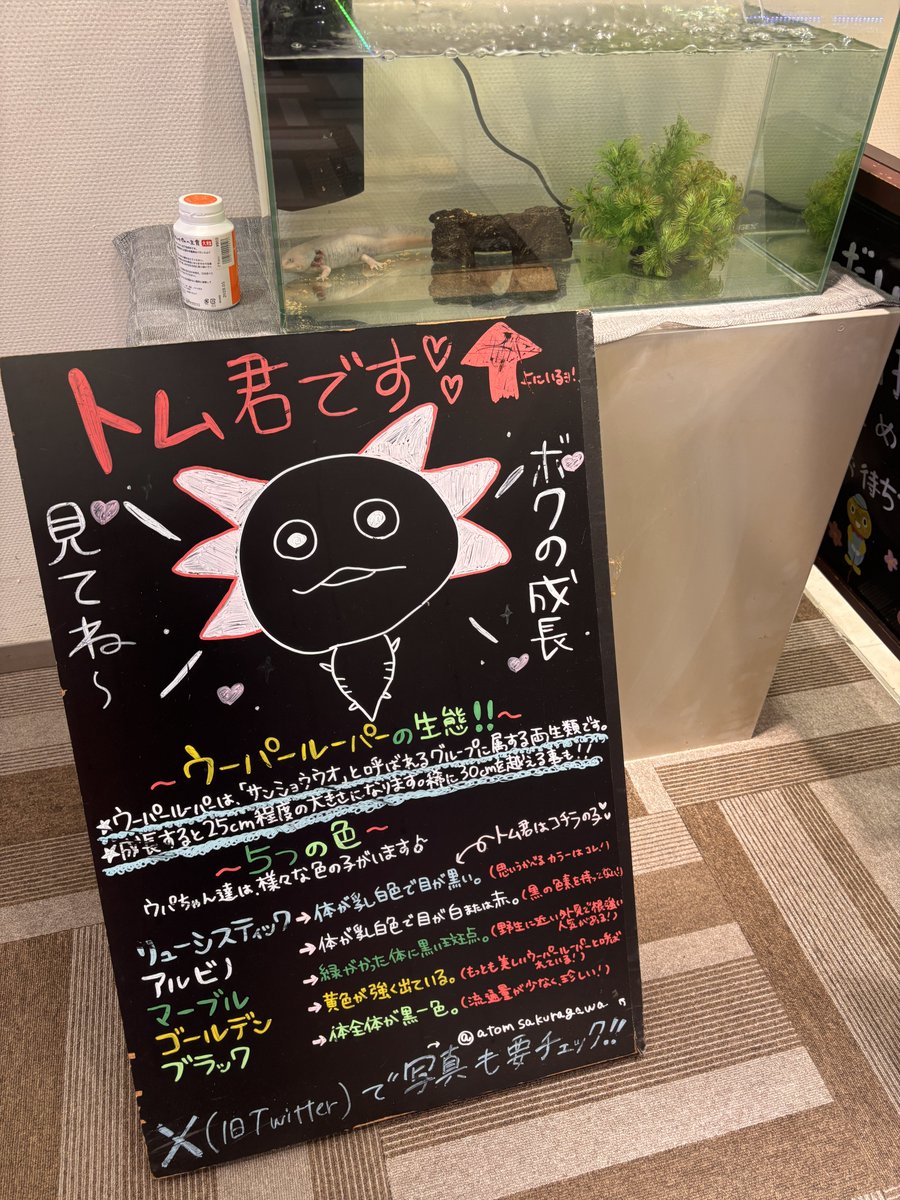 トム君です
上にいるヨ!
ボクの成長
見てね〜
〜ウーパールーパーの生態!!〜
★ウーパールーパーは、「サンショウウオ」と呼ばれるグループに属する両生類です。
★成長すると25cm程度の大きさになります。稀に30cmを越える事も!!
〜5つの色〜
ウパちゃん達は、様々な色の子がいます♪
トム君はコチラの子♥
リューシスティック→体が乳白色で目が黒い。(思いうかべるカラーはコレ!)
アルビノ→体が乳白色で目が白または赤。(黒の色素を持ってない!)
マーブル→緑がかった体に黒い斑点。(野生に近い外見で根強い人気がある!)
ゴールデン→黄色が強く出ている。(もっとも美しいウーパールーパーと呼ばれている!)
ブラック→体全体が黒一色。(流通量が少なく、珍しい!)
→@atomsakuragawa
X(旧Twitter)で写真も要チェック!!
大粒
待ち